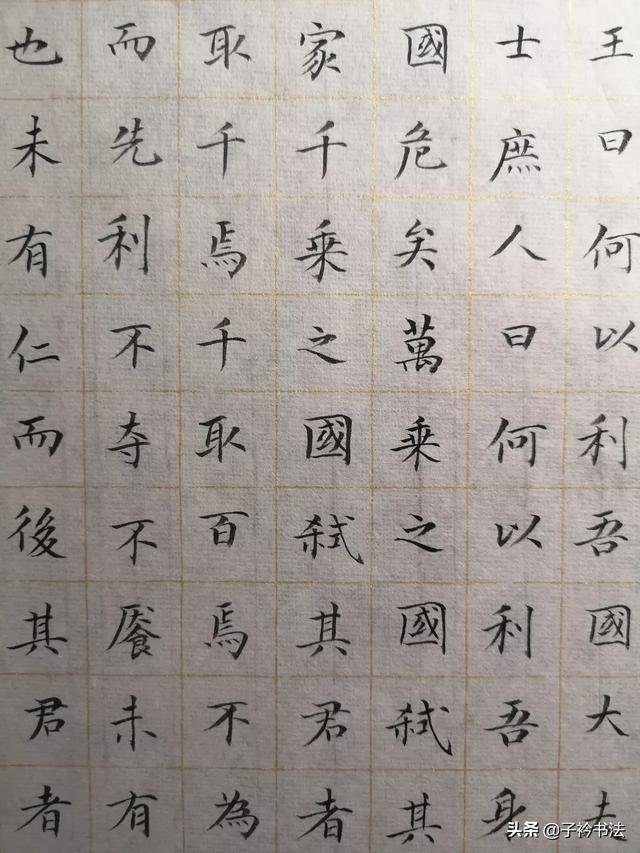 王曰何以利吾國大夫
士庶人曰何以利吾身
國危矣萬乗之國弑其
家千乗之國弑其君者
取千焉千取百焉不為
而先利不夺不饜未有
也未有仁而後其君者
头条 @子衿书法